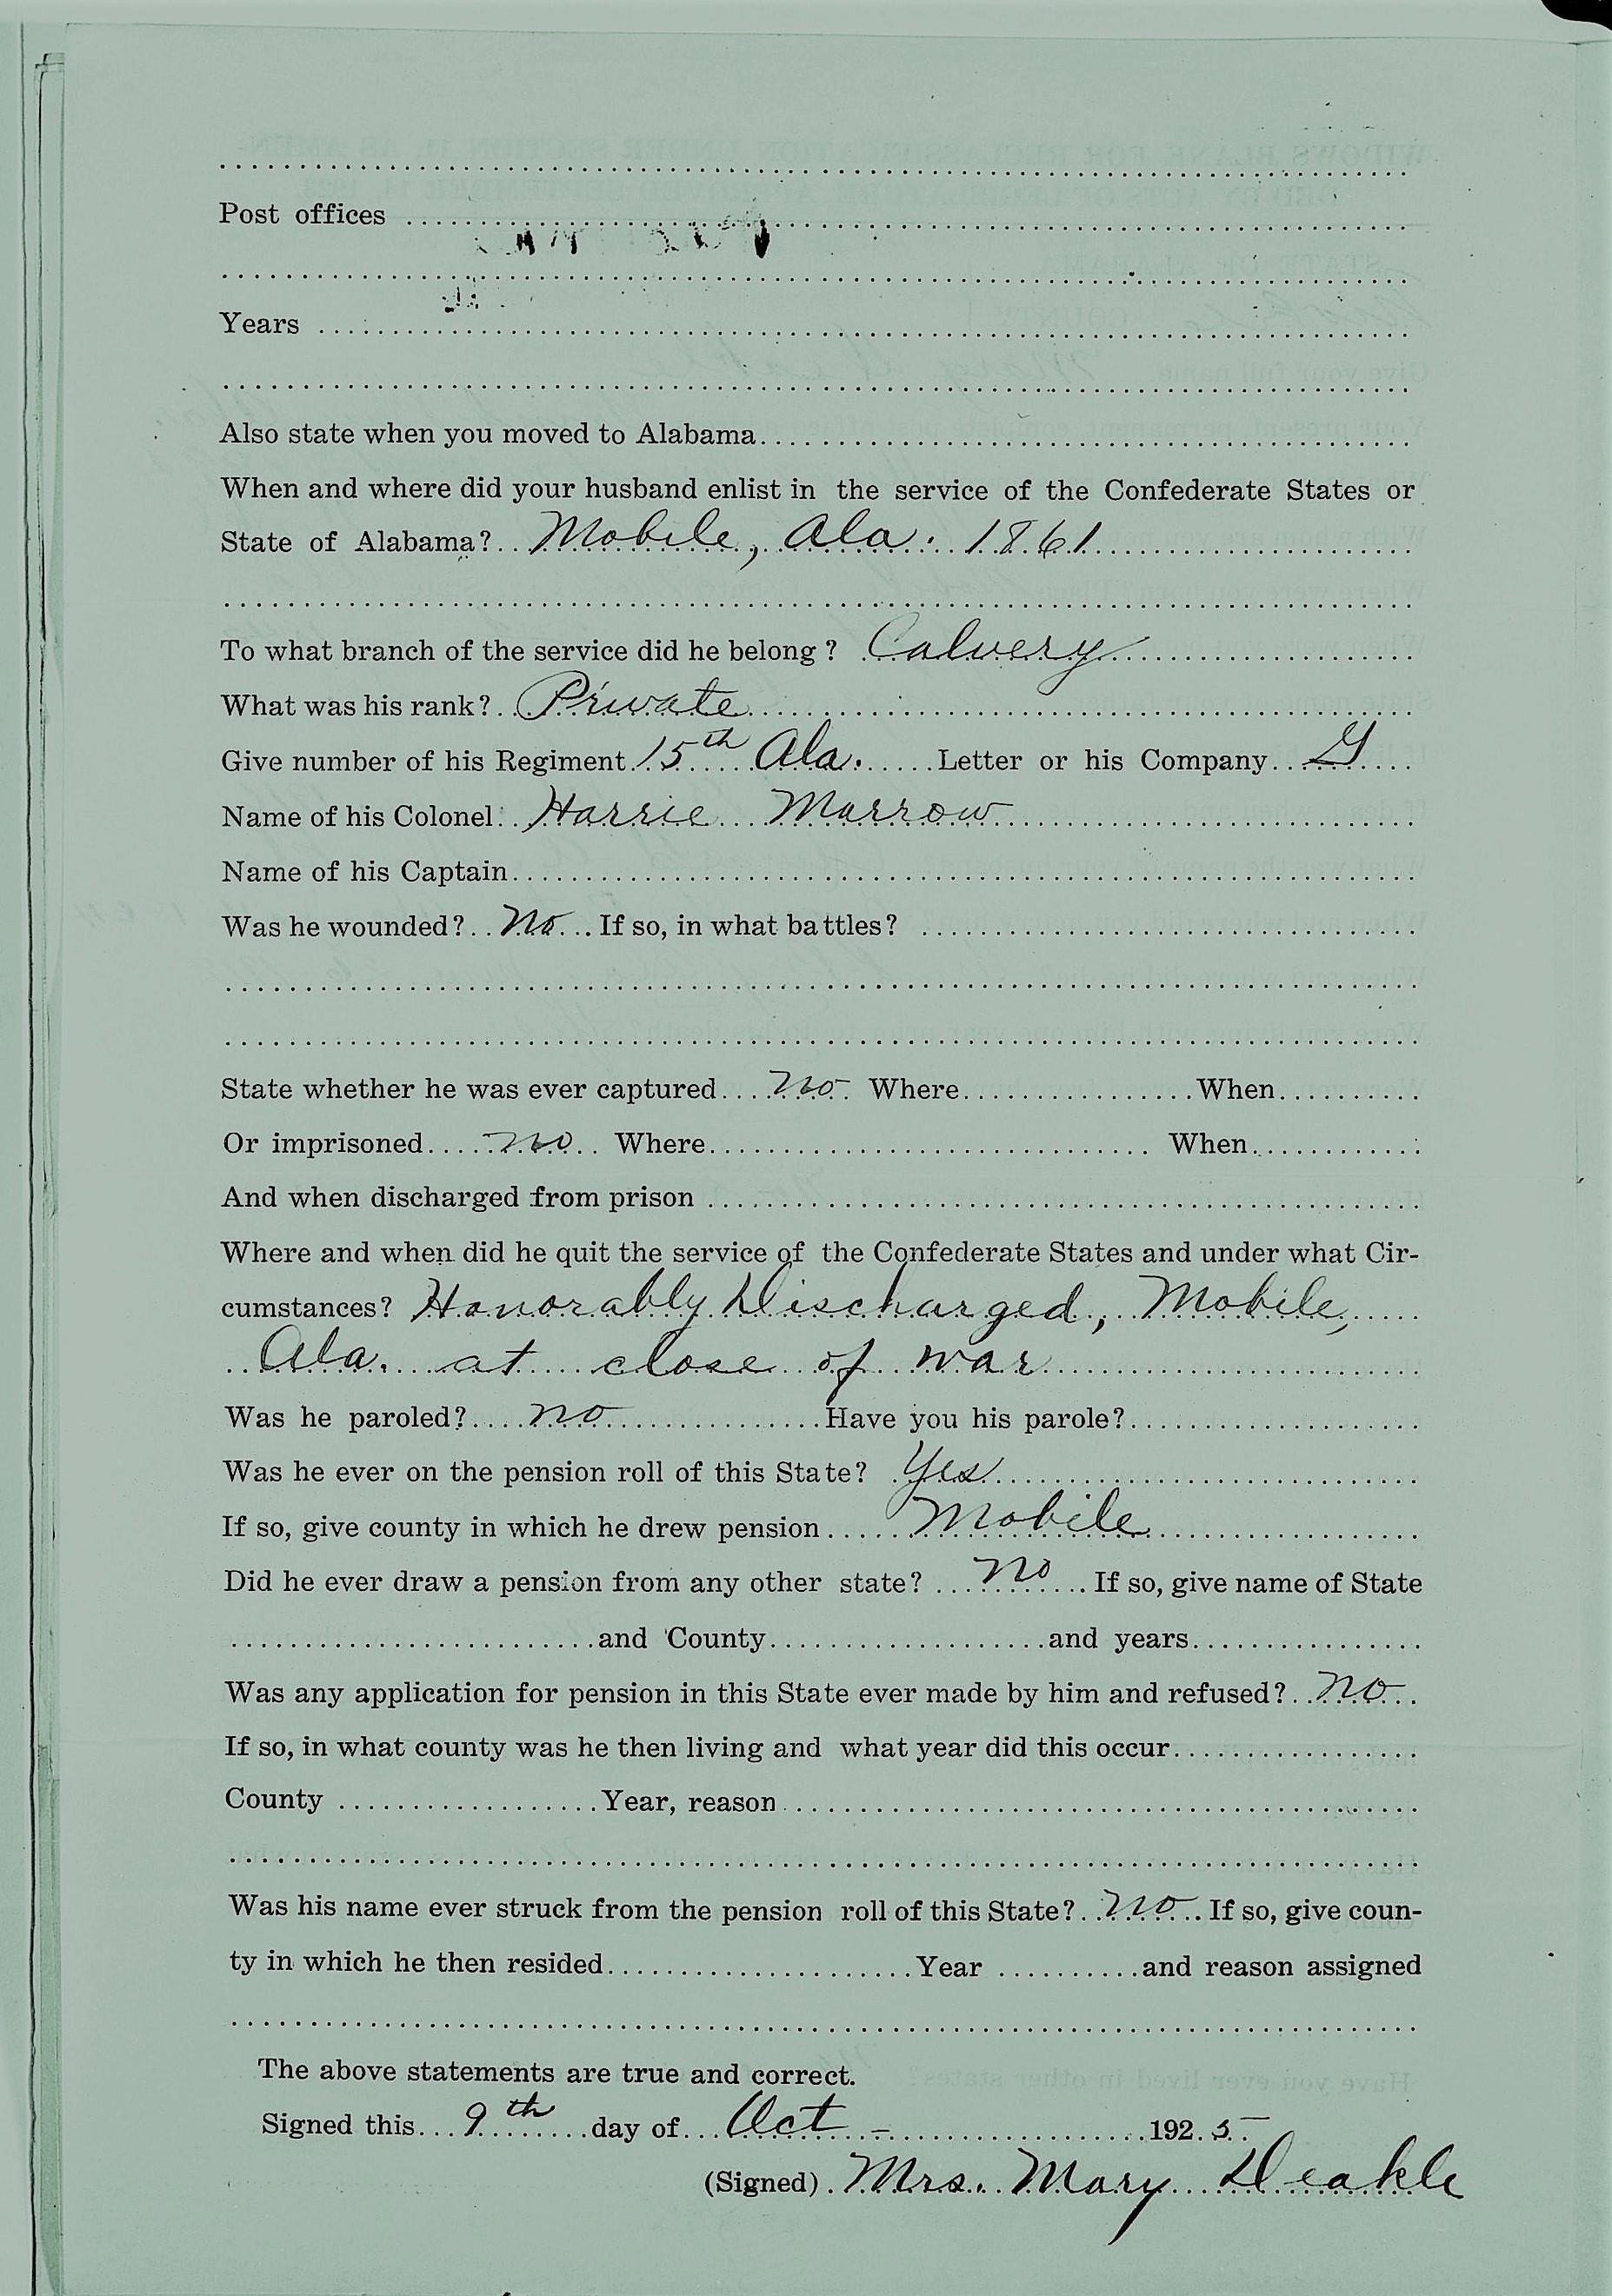 Post offices
Years
Also state when you moved to Alabama
When and where did your husband enlist in the service of the Confederate States or
State of Alabama? Mobile, Ala. 1861
To what branch of the service did he belong? Calvery
What was his rank? Private
Give number of his Regiment 15th Ala. Letter or his Company G
Name of his Colonel Harrie Marrow
Name of his Captain
Was he wounded? No If so, in what battles?
State whether he was ever captured no Where When
Or imprisoned no Where When
And when discharged from prison
Where and when did he quit the service of the Confederate States and under what Cir-
cumstances? Honorably Discharged, Mobile,
Ala. at close of war
Was he paroled? no Have you his parole?
Was he ever on the pension roll of this State? Yes
If so, give county in which he drew pension Mobile
Did he ever draw a pension from any other state? no If so, give name of State
and County and years
Was any application for pension in this State ever made by him and refused? no
If so, in what county was he then living and what year did this occur
County Year, reason
Was his name ever struck from the pension roll of this State? no If so, give coun-
ty in which he then resided Year and reason assigned
The above statements are true and correct.
Signed this 9th day of Oct - 1925
(Signed) Mrs. Mary Deakle